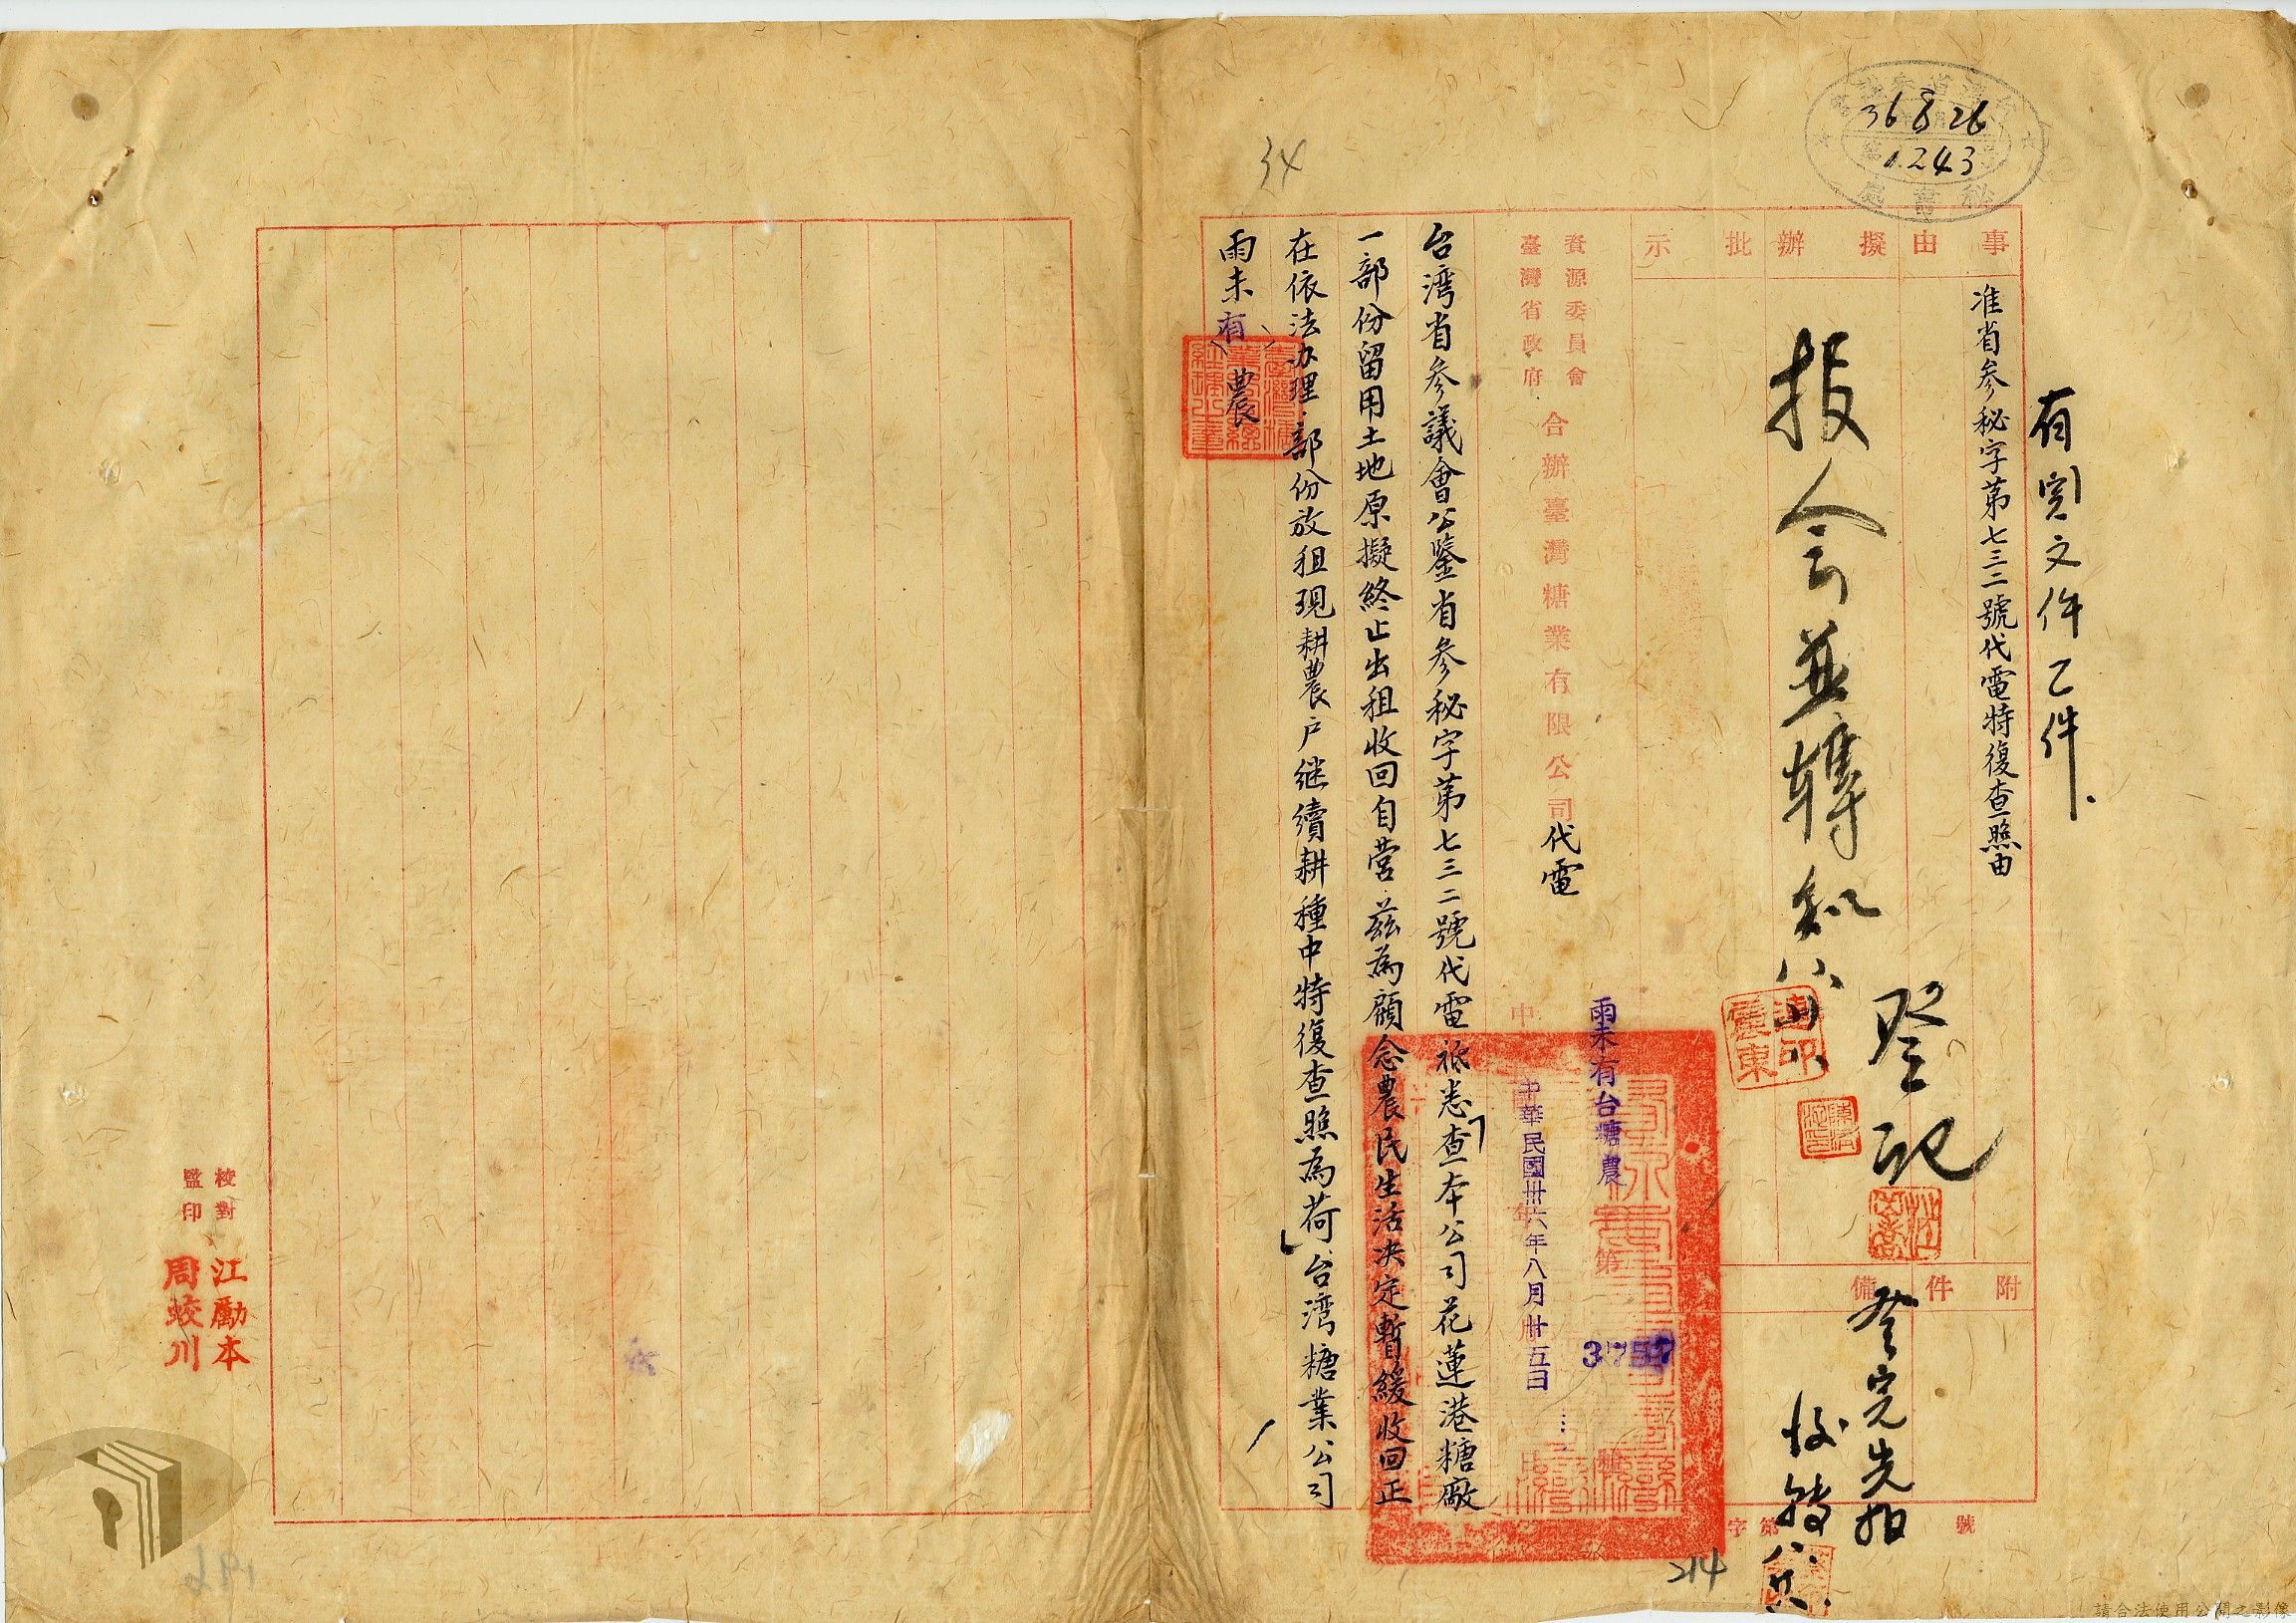 36 8 26
1243
秘書處
34
有関文件乙件
事由
擬辦
批示
准省参秘字第七三二號代電特復查照由
报会並轉知
登記
附件
備
登完先
字第
號
資源委員會
臺灣省政府
合辦臺灣糖業有限公司
代電
雨未有台糖農
第
3757
號
中華民國卅六年八月廿五日
台湾省参議會公鑒省参秘字第七三二號代電祗悉查本公司花蓮港糖廠
一部份留用土地原擬終止出租收回自营茲為顧念農民生活决定暫緩收回正
在依法办理部份放租現耕農户继續耕種中特復查照為荷台湾糖業公司
雨未有農
校對
監印
江勵本
周蛟川
214
請合法使用公開之影像